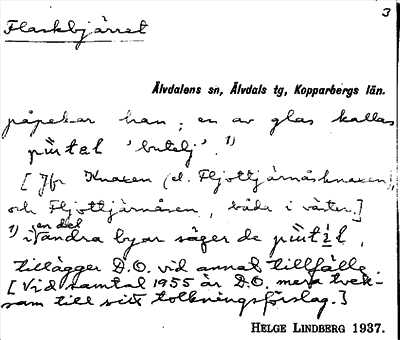 3
Flaskbjärret
Älvdalens sn, Älvdals tg, Kopparbergs län.
påpekar han; en av glas kallas
pūtal 'butelj'. 1)
[Jfr Knaxen (el. Fljottjärnåsknaxen),
och Fljottjärnåsen, båda i väster.]
1) i en del andra byar säger de pūtil,
tillägger D.O. vid annat tillfälle.
[Vid samtal 1955 är D.O. mera tvek-
sam till sitt tolkningsförslag.]
HELGE LINDBERG 1937.